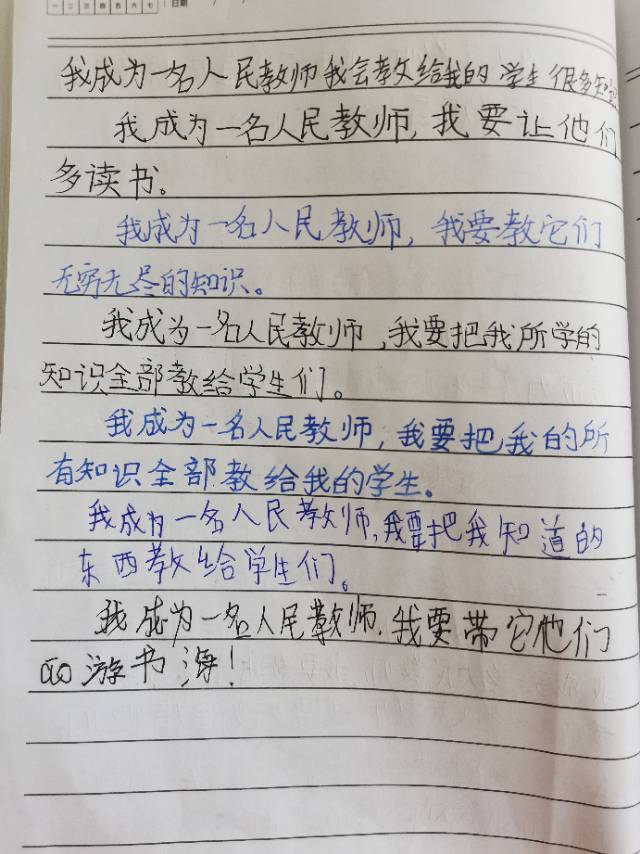 一 二 三 四 五 六 七 日期
我成为一名人民教师我会教给我的学生很多知
我成为一名人民教师,我要让他们
多读书。
我成为一名人民教师,我要教它们
无穷无尽的知识。
我成为一名人民教师,我要把我所学的
知识全部教给学生们。
我成为一名人民教师,我要把我的所
有知识全部教给我的学生。
我成为一名人民教师,我要把我知道的
东西教给学生们。
我成为一名人民教师.我要带它他们
游书海!